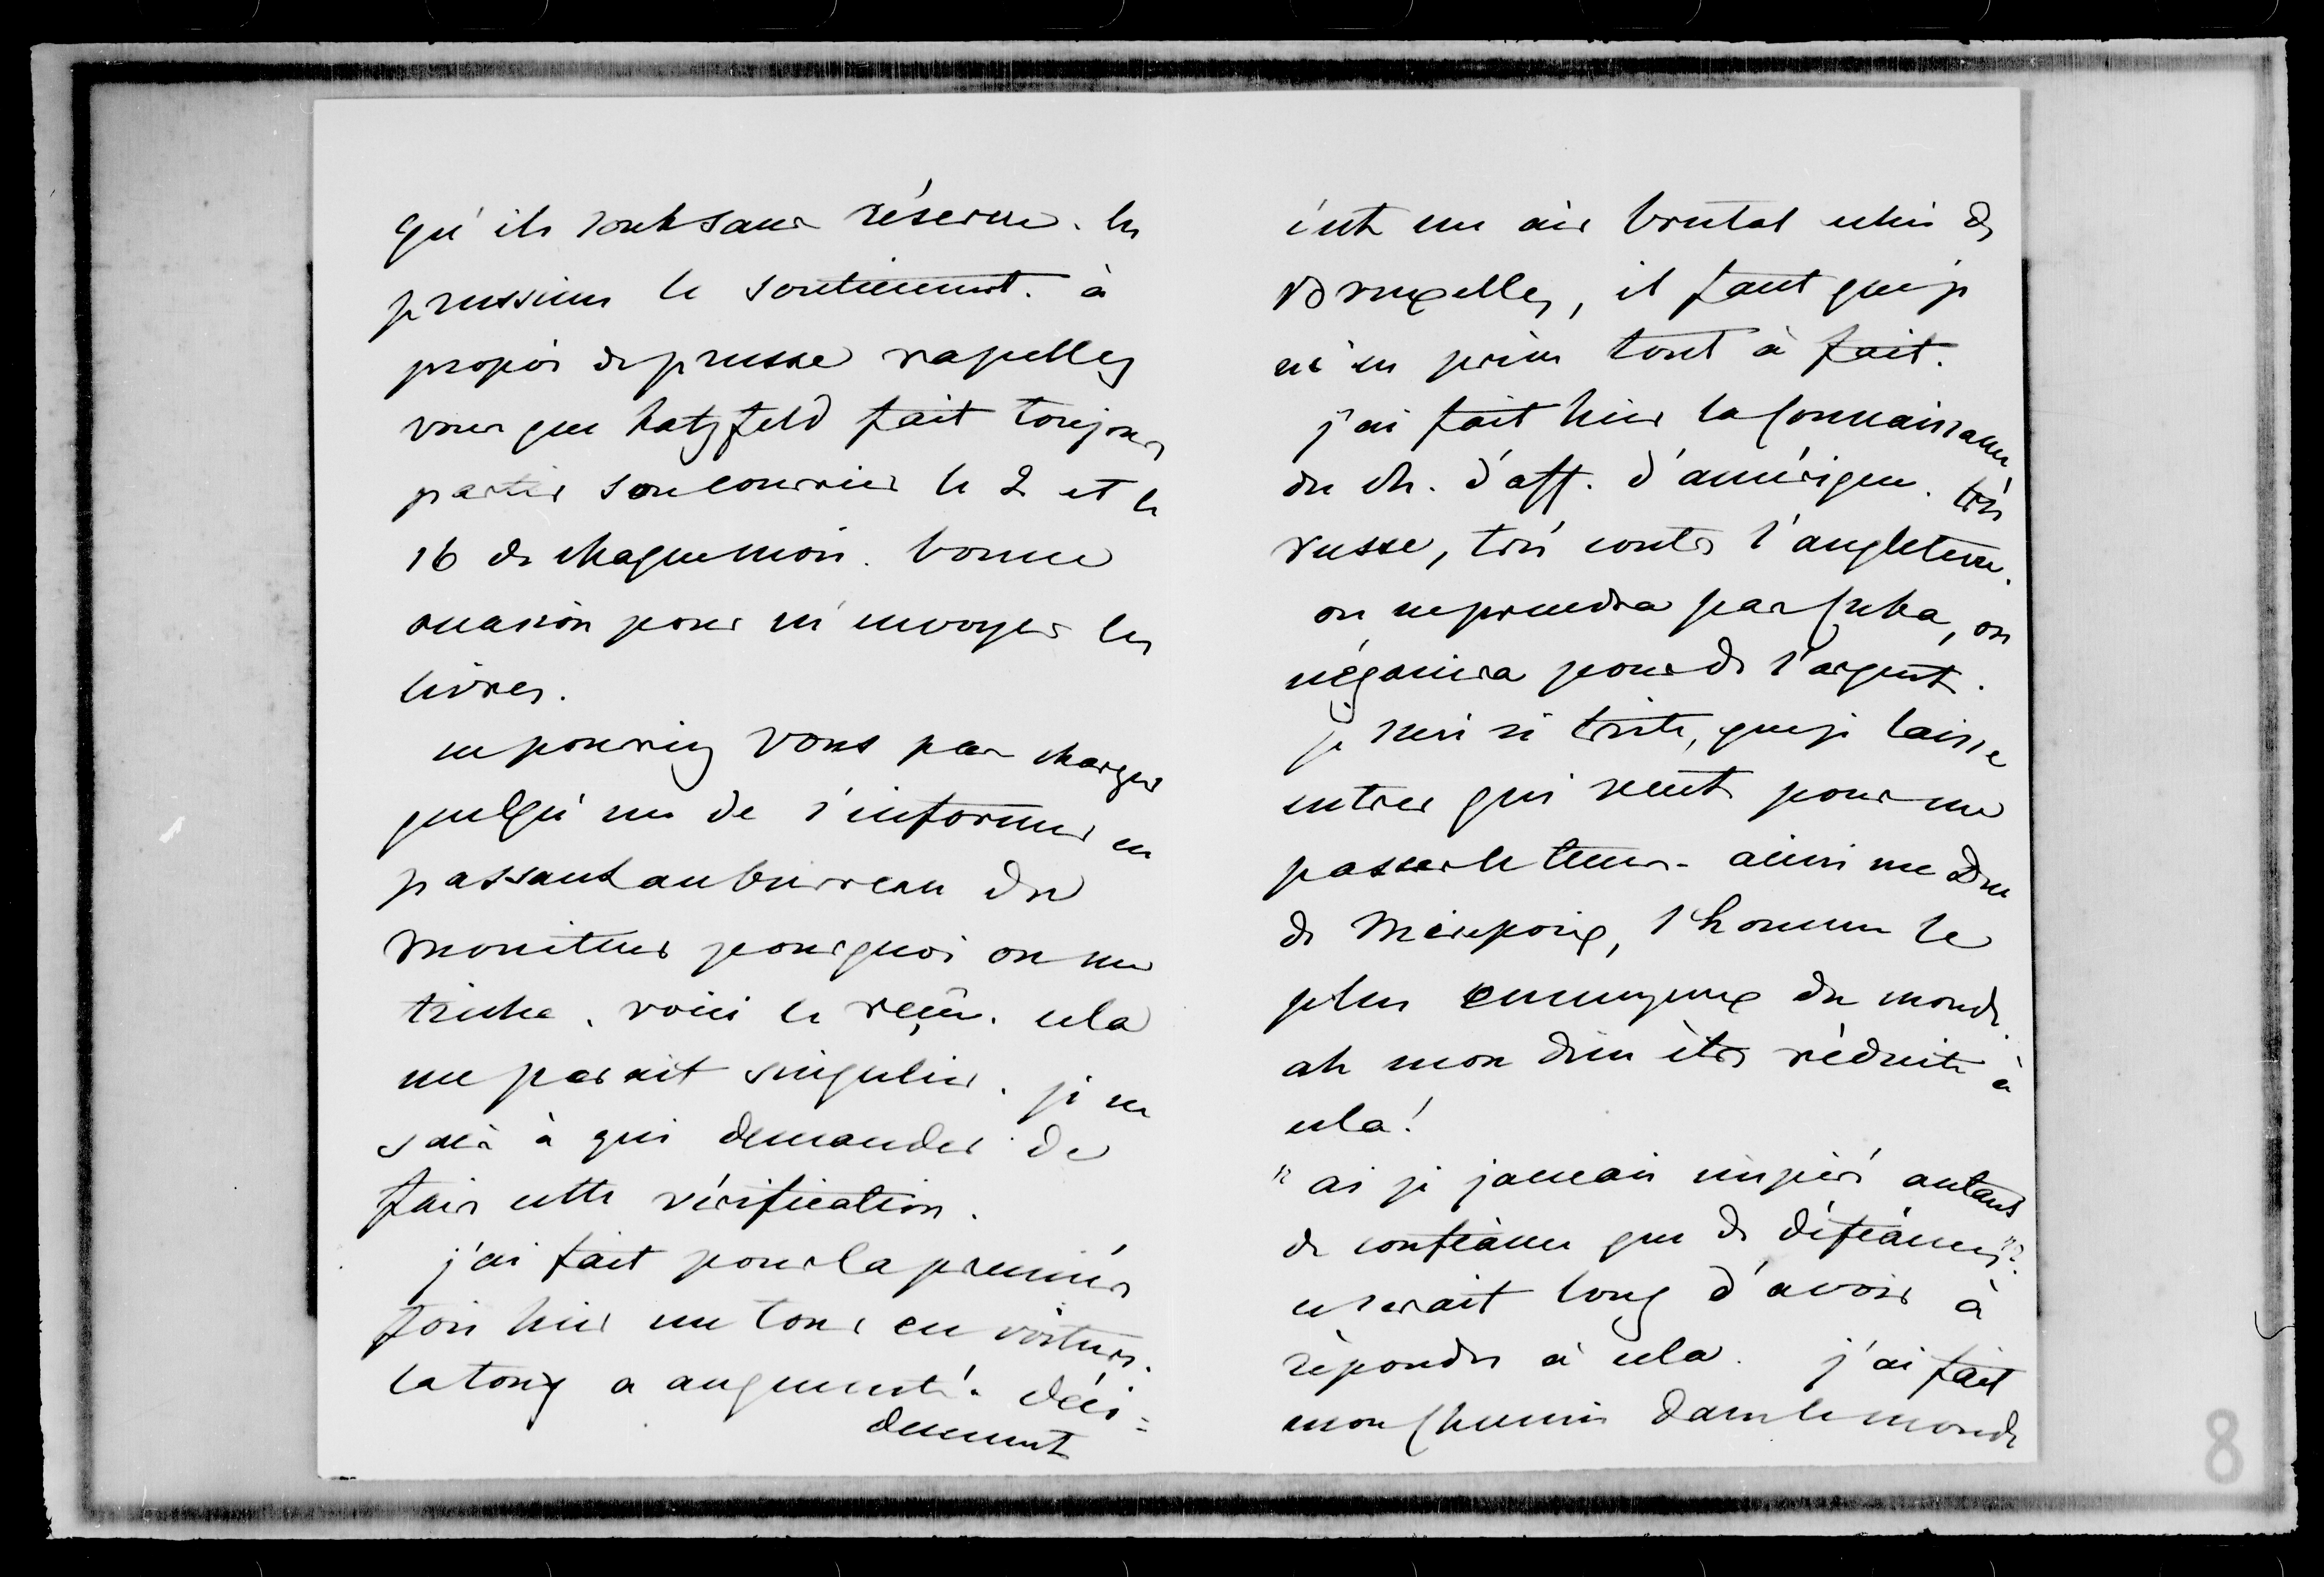 qu'ils sont sans réserve. les
prussiens le soutiennent. à
propos de prusse rapellez
vous que hatzfeld fait toujours
partir son courrier le 2 et le
16 de chaque mois. bonne
occasion pour m'envoyer les
livres.
ne pourriez vous pas charger
quelqu'un de s'informer en
passant au burreau du
moniteur pourquoi on me
triche. voici le reçu. cela
me parait singulier. je ne
sais à qui demander de
faire cette vérification.
j'ai fait pour la première
fois hier un tour en voiture.
la toux a augmenté. déci=
demment
c'est un air brutal celui de
Bruxelles, il faut que je
m'en prive tout à fait.
j'ai fait hier la connaissance
du ch. d'aff. d'amérique. très
russe, très contre l'angleterre.
on ne prendra pas Cuba, on
négociera pour de l'argent.
je suis si triste, que je laisse
entrer qui veut pour me
passer le tems. ainsi un Duc
de Mirepoix, l'homme le
plus ennuyeux du monde.
ah mon dieu être réduite à
cela!
"ai je jamais inspiré autant
de confiance que de défiance"?
ce serait long d'avoir à
répondre à cela. j'ai fait
mon chemin dans le monde
8